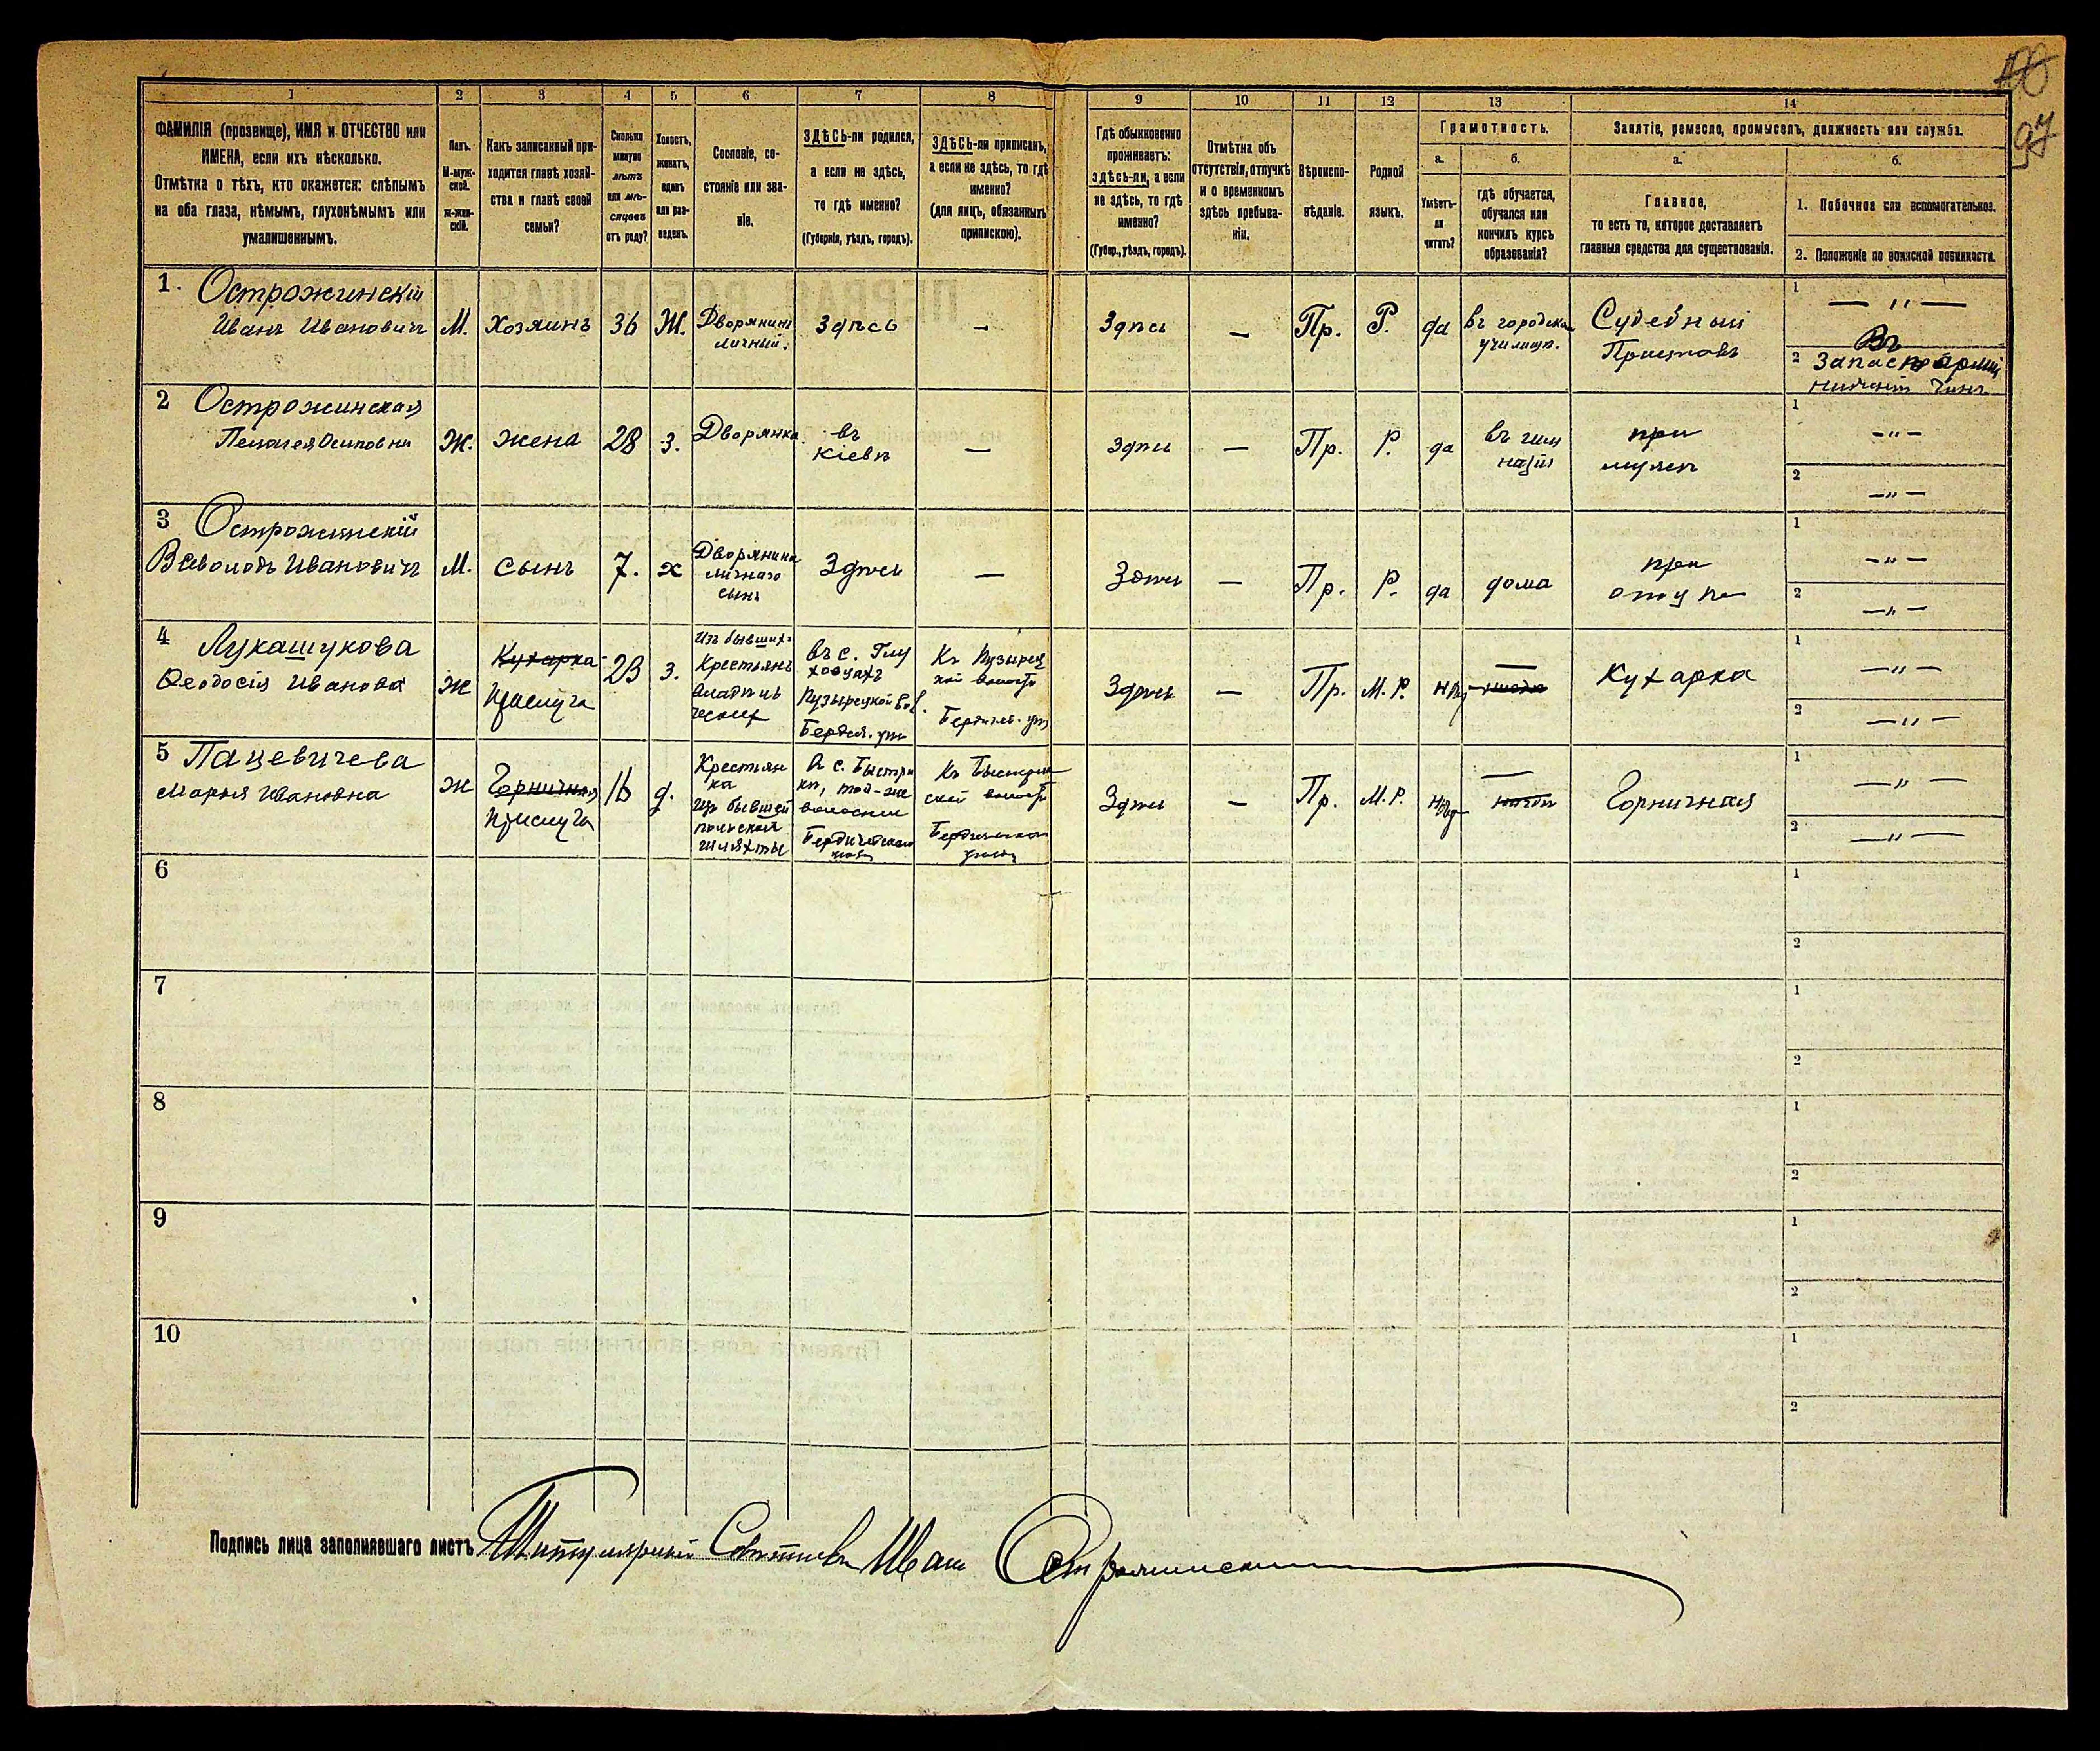 100
97
1 2 3 4 5 6 7 8 9 10 11 12 13 14
ФАМИЛІЯ (прозвище), ИМЯ и ОТЧЕСТВО или
ИМЕНА, если ихъ нѣсколько.
Отмѣтка о тѣхъ, кто окажется: слѣпымъ
на оба глаза, нѣмымъ, глухонѣмымъ или
умалишеннымъ.
Полъ.
М-муж-
ской.
ж-жен-
скій.
Какъ записанный при-
ходится главѣ хозяй-
ства и главѣ своей
семьи?
Сколько
минуло
лѣтъ
или мѣ-
сяцевъ
отъ роду?
Холостъ,
женатъ,
вдовъ
или раз-
веденъ.
Сословіе, со-
стояніе или зва-
ніе.
ЗДѢСЬ-ли родился,
а если не здѣсь,
то гдѣ именно?
(Губернія, уѣздъ, городъ).
ЗДѢСЬ-ли приписанъ,
а если не здѣсь, то гдѣ
именно?
(для лицъ, обязанныхъ
припискою).
Гдѣ обыкновенно
проживаетъ:
здѣсь-ли, а если
не здѣсь, то гдѣ
именно?
(Губер., уѣздъ, городъ).
Отмѣтка объ
отсутствіи, отлучкѣ
и о временномъ
здѣсь пребыва-
ніи.
Вѣроиспо-
вѣданіе.
Родной
языкъ.
Грамотность.
а.
Умѣетъ-
ли
читать?
б.
гдѣ обучается,
обучался или
кончилъ курсъ
образованія?
Занятіе, ремесло, промыселъ, должность или служба.
а.
Главное,
то есть то, которое доставляетъ
главныя средства для существованія.
б.
1. Побочное или вспомогательное.
2. Положеніе по воинской повинности.
1. Острожинскій
Иванъ Ивановичъ М. Хозяинъ 36 Ж. Дворянинъ
личный. Здѣсь — Здѣсь — Пр. Р. да въ городском
училищ. Судебный
Приставъ
1 — " —
2 Въ
Запасѣ арміи
нижній чинъ
2 Острожинская
Пелагея Осиповна Ж. жена 28 з. Дворянка въ
Кіевѣ — здѣсь — Пр. Р. да въ гим
назіи при
мужѣ
1 — " —
2 — " —
3 Острожинскій
Всеволодъ Ивановичъ М. сынъ 7. х Дворянина
личнаго
сынъ Здѣсь — Здѣсь — Пр. Р. да дома при
отцѣ
1 — " —
2 — " —
4 Лукашукова
Ѳеодосія Иванова ж Кухарка
прислуга 23 з. Изъ бывшихъ
Крестьянъ
владѣль
ческ въ с. Глу
ховцахъ
Пузырецкой вол.
Бердич. уѣз Къ Пузырец
кой волости
Бердичев. уѣз Здѣсь — Пр. М. Р. нѣт — Кухарка
1 — " —
2 — " —
5 Пацевичева
Марья Ивановна ж Горничная
прислуга 16 д. Крестьян
ка
изъ бывшей
польской
шляхты В с. Быстри
кѣ, той-же
волости
Бердичевскаго
уѣзда Къ Быстриц
ской волости
Бердичевскаго
уѣзда Здѣсь — Пр. М. Р. нѣт — Горничная
1 — " —
2 — " —
6
1
2
7
1
2
8
1
2
9
1
2
10
1
2
Подпись лица заполнявшаго листъ Титулярный Совѣтникъ Иван Острожинский